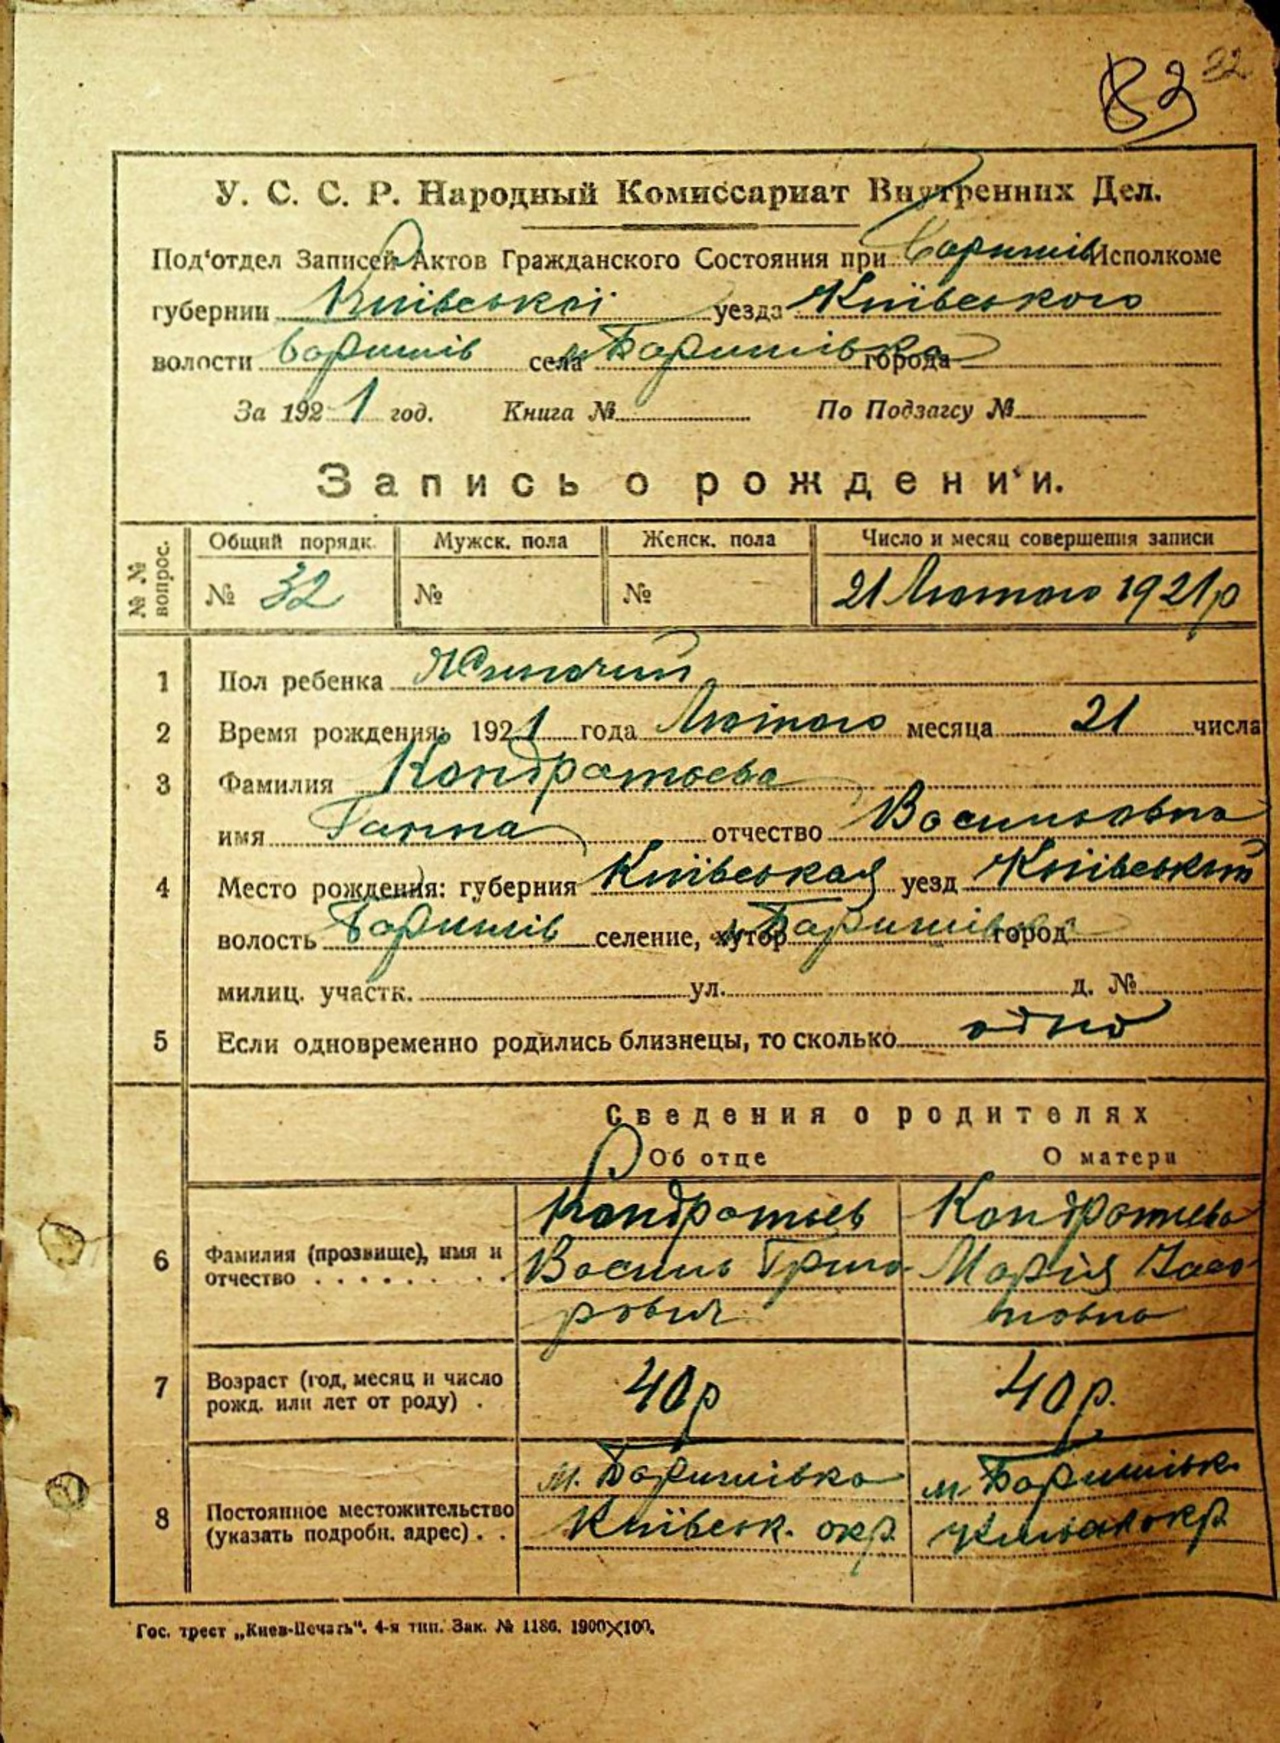 83 22
У. С. С. Р. Народный Комиссариат Внутренних Дел.
Под'отдел Записей Актов Гражданского Состояния при Баришів Исполкоме
губернии Київської уезда Київського
волости Баришів села м. Баришівка города
За 1921 год. Книга № По Подзагсу №
Запись о рождении.
№ № вопрос. Общий порядк. Мужск. пола Женск. пола Число и месяц совершения записи
№ 32 № № 21 Лютого 1921 р
1 Пол ребенка Жиночий
2 Время рождения: 1921 года Лютого месяца 21 числа
3 Фамилия Кондратьева
имя Ганна отчество Васильовна
4 Место рождения: губерния Київськая уезд Київський
волость Баришів селение, хутор м. Баришівка город
милиц. участк. ул. д. №
5 Если одновременно родились близнецы, то сколько одно
Сведения о родителях
Об отце О матери
Кондратьев Кондратьева
6 Фамилия (прозвище), имя и отчество . . . . . . . . Василь Григо- Марія
рович
7 Возраст (год, месяц и число рожд. или лет от роду) . 40 р 40 р.
м. Баришівка м Баришівк.
8 Постоянное местожительство (указать подробн. адрес) . . Київськ. окр. окр
Гос. трест „Киев-Печать“. 4-я тип. Зак. № 1186. 1900×100.